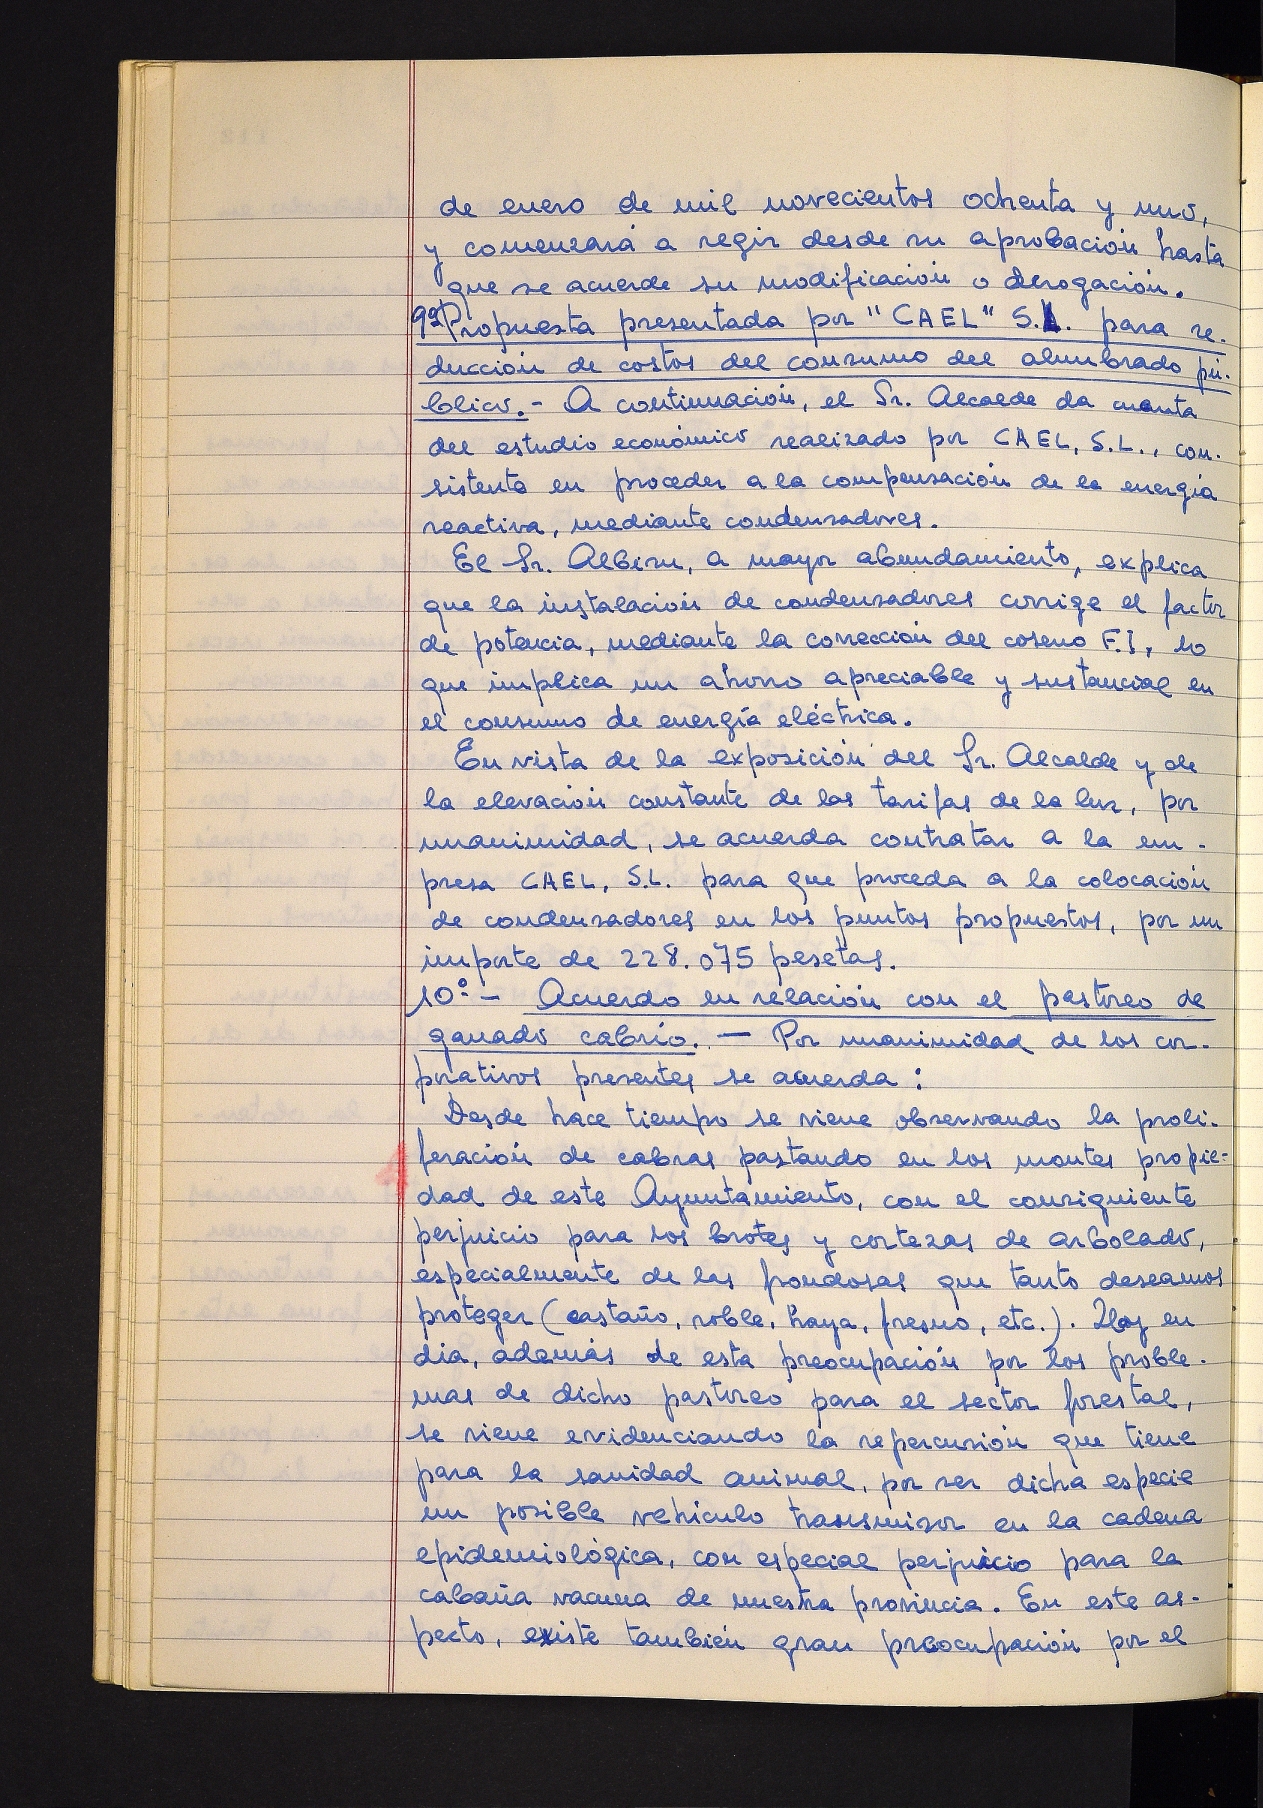 de enero de mil novecientos ochenta y uno,
y comenzará a regir desde su aprobación hasta
que se acuerde su modificación o derogación.
9º Propuesta presentada por "CAEL" S.L. para re-
ducción de costos del consumo del alumbrado pú-
blico.- A continuación, el Sr. Alcalde da cuenta
del estudio económico realizado por CAEL, S.L., con-
sistente en proceder a la compensación de la energía
reactiva, mediante condensadores.
El Sr. Albizu, a mayor abundamiento, explica
que la instalación de condensadores corrige el factor
de potencia, mediante la corrección del coseno F.I, lo
que implica un ahorro apreciable y sustancial en
el consumo de energía eléctrica.
En vista de la exposición del Sr. Alcalde y de
la elevación constante de las tarifas de la luz, por
unanimidad, se acuerda contratar a la em-
presa CAEL, S.L. para que proceda a la colocación
de condensadores en los puntos propuestos, por un
importe de 228.075 pesetas.
10º.- Acuerdo en relación con el pastoreo de
ganado cabrío. - Por unanimidad de los cor-
porativos presentes se acuerda:
Desde hace tiempo se viene observando la proli-
feración de cabras pastando en los montes propie-
dad de este Ayuntamiento, con el consiguiente
perjuicio para los brotes y cortezas de arbolado,
especialmente de las frondosas que tanto deseamos
proteger (castaño, roble, haya, fresno, etc.). Hoy en
día, además de esta preocupación por los proble-
mas de dicho pastoreo para el sector forestal,
se viene evidenciando la repercusión que tiene
para la sanidad animal, por ser dicha especie
un posible vehículo transmisor en la cadena
epidemiológica, con especial perjuicio para la
cabaña vacuna de nuestra provincia. En este as-
pecto, existe también gran preocupación por el